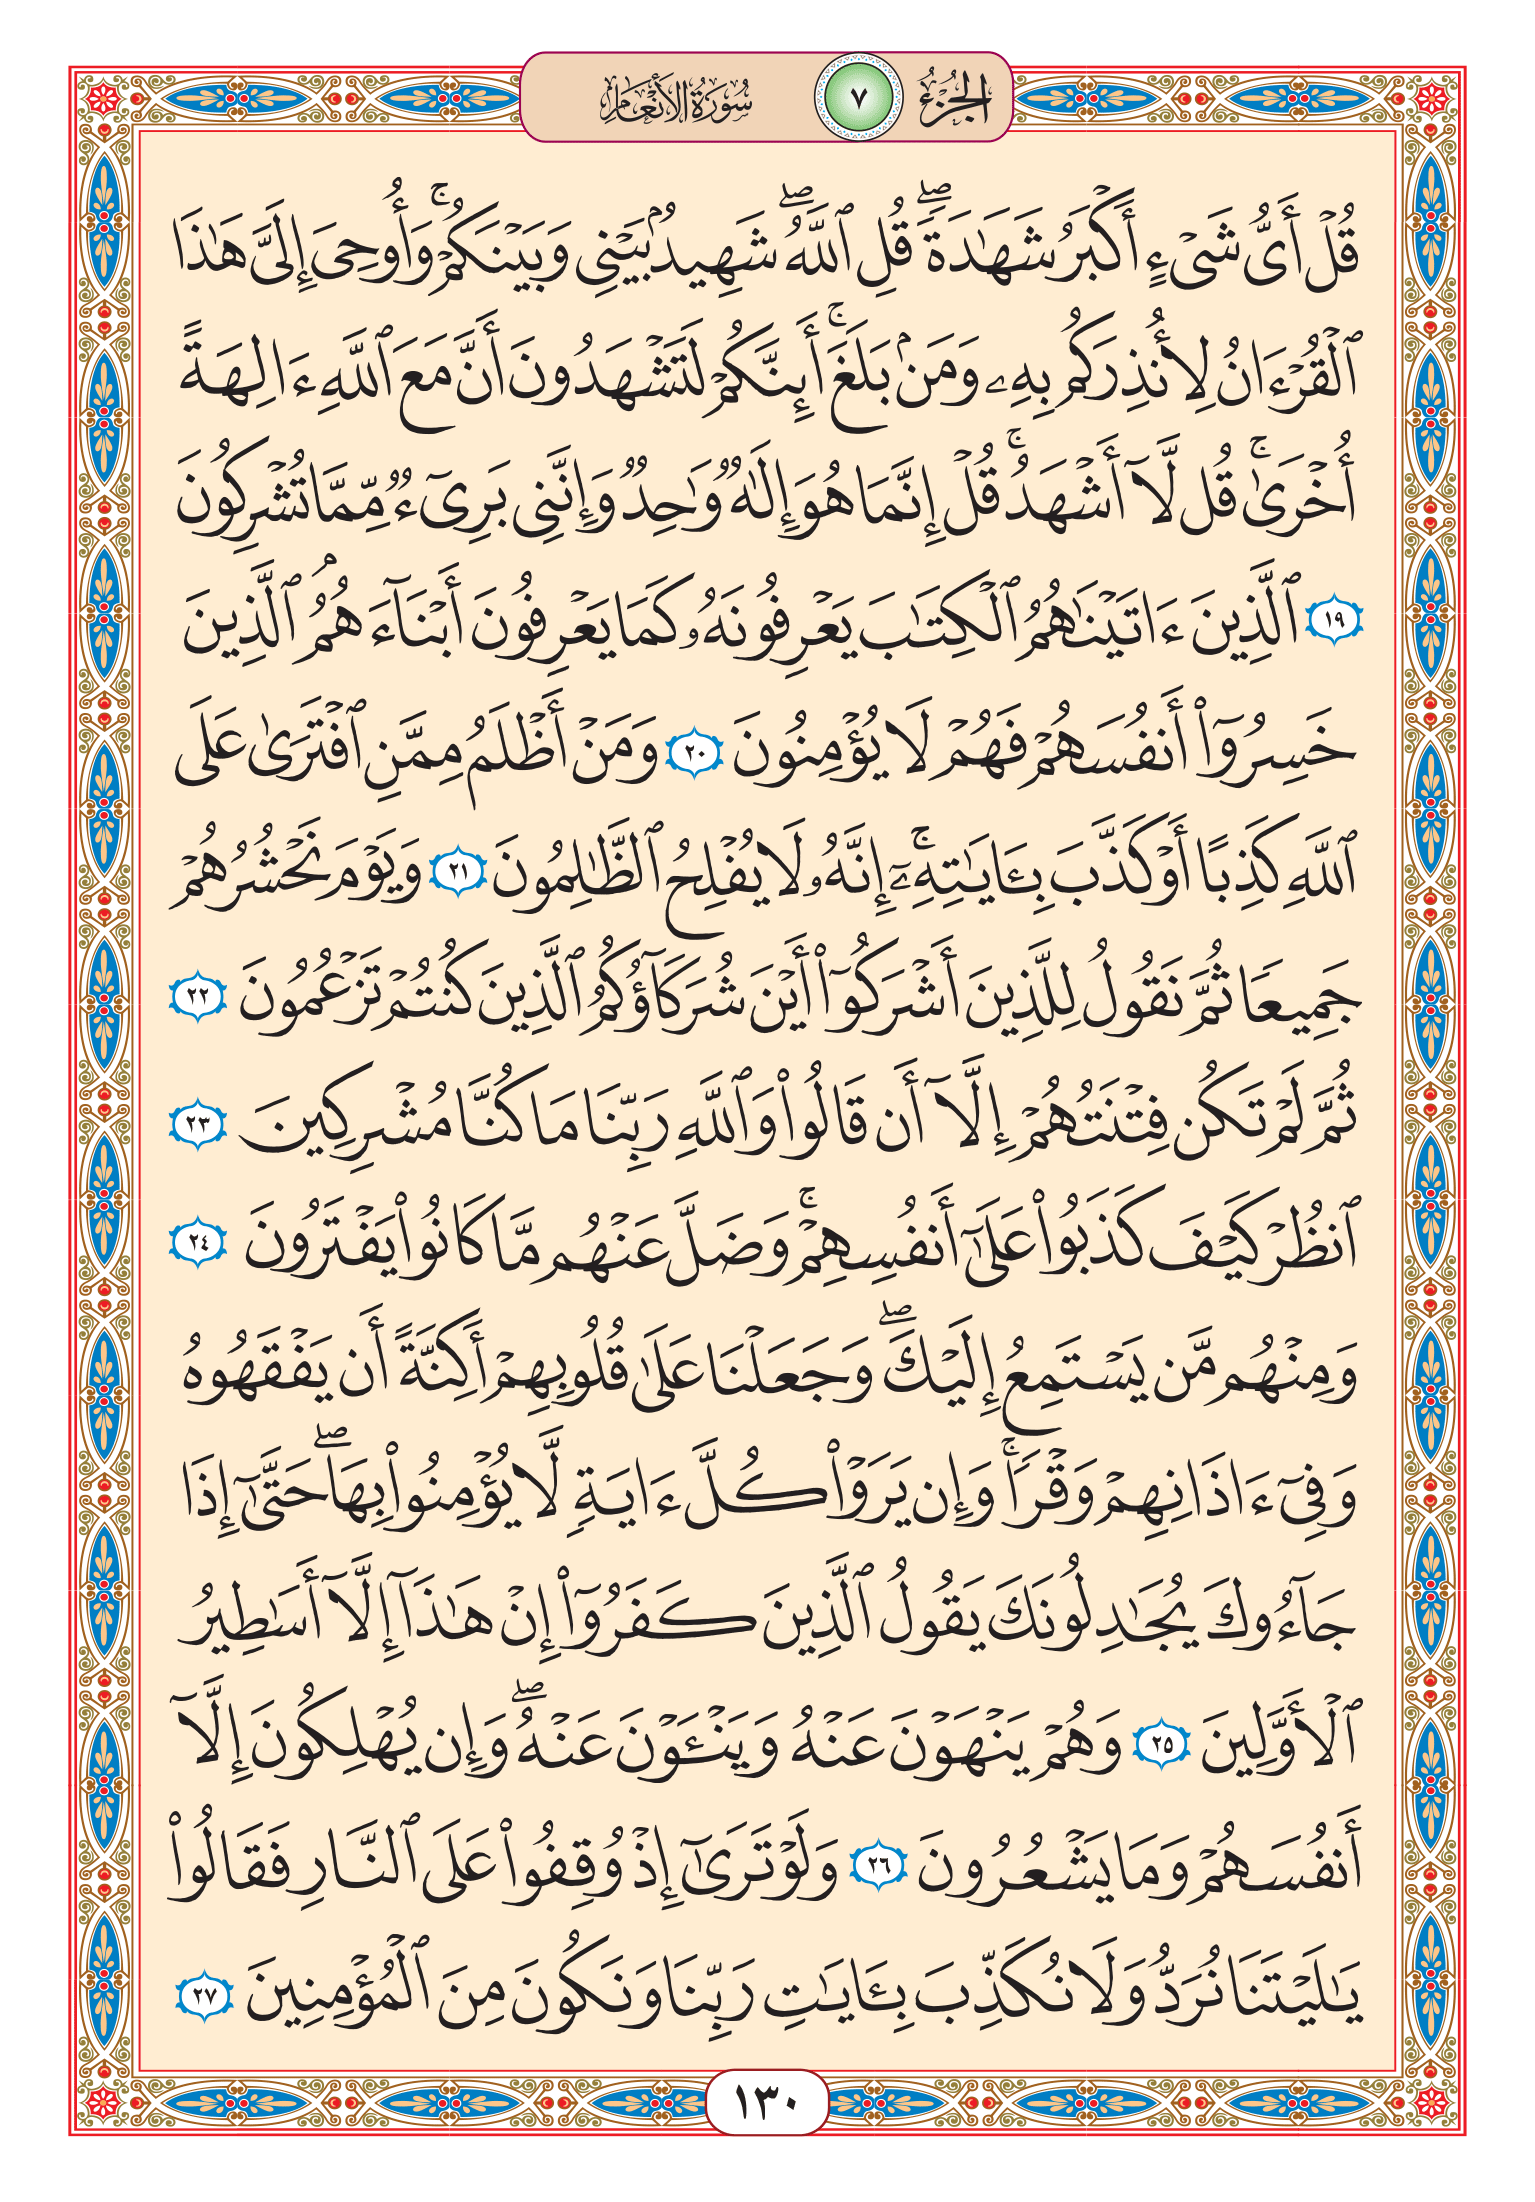 الجزء ٧ سورة الأنعام
قُلۡ أَيُّ شَيۡءٍ أَكۡبَرُ شَهَٰدَةٗۖ قُلِ ٱللَّهُۖ شَهِيدُۢ بَيۡنِي وَبَيۡنَكُمۡۚ وَأُوحِيَ إِلَيَّ هَٰذَا
ٱلۡقُرۡءَانُ لِأُنذِرَكُم بِهِۦ وَمَنۢ بَلَغَۚ أَئِنَّكُمۡ لَتَشۡهَدُونَ أَنَّ مَعَ ٱللَّهِ ءَالِهَةً
أُخۡرَىٰۚ قُل لَّآ أَشۡهَدُۚ قُلۡ إِنَّمَا هُوَ إِلَٰهٞ وَٰحِدٞ وَإِنَّنِي بَرِيٓءٞ مِّمَّا تُشۡرِكُونَ
١٩ ٱلَّذِينَ ءَاتَيۡنَٰهُمُ ٱلۡكِتَٰبَ يَعۡرِفُونَهُۥ كَمَا يَعۡرِفُونَ أَبۡنَآءَهُمُۘ ٱلَّذِينَ
خَسِرُوٓاْ أَنفُسَهُمۡ فَهُمۡ لَا يُؤۡمِنُونَ ٢٠ وَمَنۡ أَظۡلَمُ مِمَّنِ ٱفۡتَرَىٰ عَلَى
ٱللَّهِ كَذِبًا أَوۡ كَذَّبَ بِـَٔايَٰتِهِۦٓۚ إِنَّهُۥ لَا يُفۡلِحُ ٱلظَّٰلِمُونَ ٢١ وَيَوۡمَ نَحۡشُرُهُمۡ
جَمِيعٗا ثُمَّ نَقُولُ لِلَّذِينَ أَشۡرَكُوٓاْ أَيۡنَ شُرَكَآؤُكُمُ ٱلَّذِينَ كُنتُمۡ تَزۡعُمُونَ ٢٢
ثُمَّ لَمۡ تَكُن فِتۡنَتُهُمۡ إِلَّآ أَن قَالُواْ وَٱللَّهِ رَبِّنَا مَا كُنَّا مُشۡرِكِينَ ٢٣
ٱنظُرۡ كَيۡفَ كَذَبُواْ عَلَىٰٓ أَنفُسِهِمۡۚ وَضَلَّ عَنۡهُم مَّا كَانُواْ يَفۡتَرُونَ ٢٤
وَمِنۡهُم مَّن يَسۡتَمِعُ إِلَيۡكَۖ وَجَعَلۡنَا عَلَىٰ قُلُوبِهِمۡ أَكِنَّةً أَن يَفۡقَهُوهُ
وَفِيٓ ءَاذَانِهِمۡ وَقۡرٗاۚ وَإِن يَرَوۡاْ كُلَّ ءَايَةٖ لَّا يُؤۡمِنُواْ بِهَاۖ حَتَّىٰٓ إِذَا
جَآءُوكَ يُجَٰدِلُونَكَ يَقُولُ ٱلَّذِينَ كَفَرُوٓاْ إِنۡ هَٰذَآ إِلَّآ أَسَٰطِيرُ
ٱلۡأَوَّلِينَ ٢٥ وَهُمۡ يَنۡهَوۡنَ عَنۡهُ وَيَنۡـَٔوۡنَ عَنۡهُۖ وَإِن يُهۡلِكُونَ إِلَّآ
أَنفُسَهُمۡ وَمَا يَشۡعُرُونَ ٢٦ وَلَوۡ تَرَىٰٓ إِذۡ وُقِفُواْ عَلَى ٱلنَّارِ فَقَالُواْ
يَٰلَيۡتَنَا نُرَدُّ وَلَا نُكَذِّبَ بِـَٔايَٰتِ رَبِّنَا وَنَكُونَ مِنَ ٱلۡمُؤۡمِنِينَ ٢٧
١٣٠